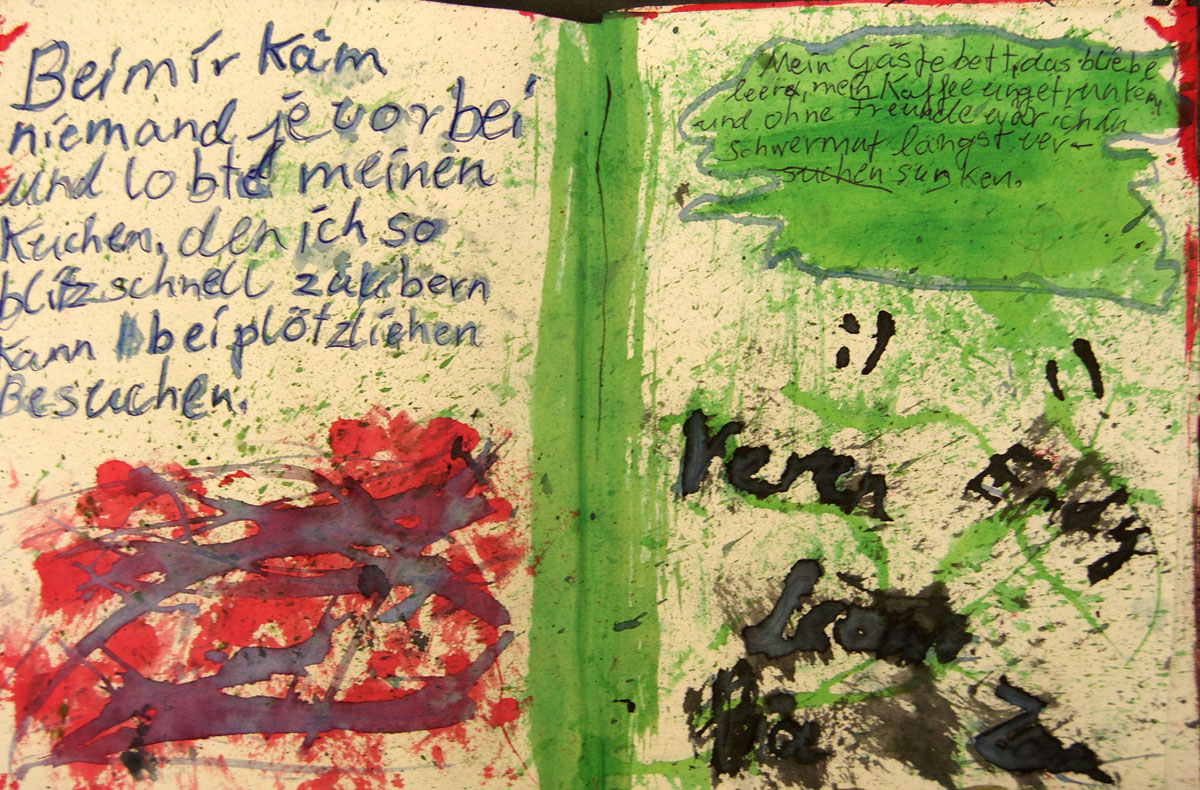 Bei mir käm
niemand je vorbei
und lobte meinen
Kuchen, den ich so
blitzschnell zaubern
kann bei plötzlichen
Besuchen.
Mein Gästebett, das bliebe
leer, mein Kaffee ungetrunken,
und ohne Freunde wär ich in
schwermut längst ver-
suchen sunken.
Veren
Leon
Mia